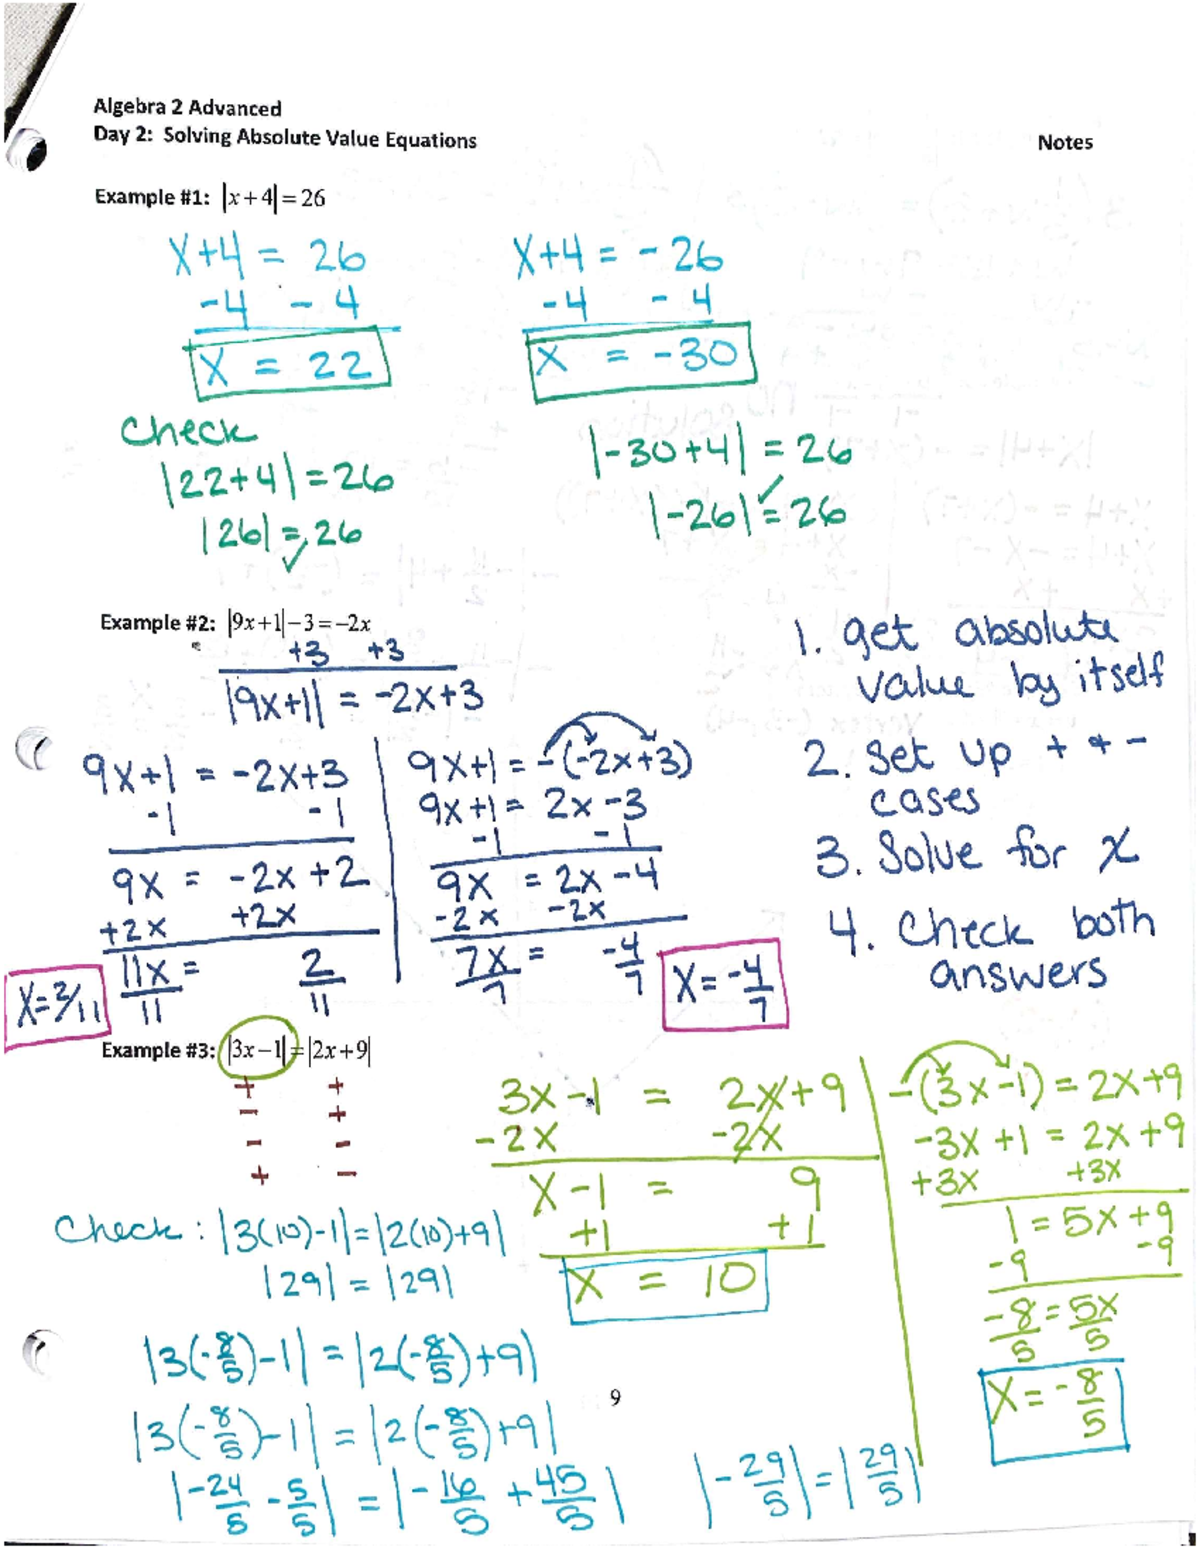 Algebra 2 Advanced
Day 2: Solving Absolute Value Equations
Notes
Example #1: |x+4|=26
x+4 = 26
-4 - 4
x = 22
x+4 = -26
-4 - 4
x = -30
Check
|22+4|=26
|26|=26 ✓
|-30+4|=26
|-26|=26 ✓
Example #2: |9x+1|-3=-2x
+3 +3
|9x+1| = -2x+3
9x+1 = -2x+3
-1 -1
9x = -2x+2
+2x +2x
11x/11 = 2/11
x=2/11
9x+1 = -(-2x+3)
9x+1 = 2x-3
-1 -1
9x = 2x-4
-2x -2x
7x/7 = -4/7
x=-4/7
1. get absolute
value by itself
2. Set up + + -
cases
3. Solve for x
4. Check both
answers
Example #3: |3x-1|=|2x+9|
+ +
- +
- -
+ -
3x-1 = 2x+9
-2x -2x
x-1 = 9
+1 +1
x = 10
-(3x-1) = 2x+9
-3x+1 = 2x+9
+3x +3x
1=5x+9
-9 -9
-8/5=5x/5
x=-8/5
Check: |3(10)-1|=|2(10)+9|
|29|=|29|
|3(-8/5)-1|=|2(-8/5)+9|
|3(-8/5)-1|=|2(-8/5)+9|
|-24/5-5/5|=|-16/5+45/5|
|-29/5|=|29/5|
9